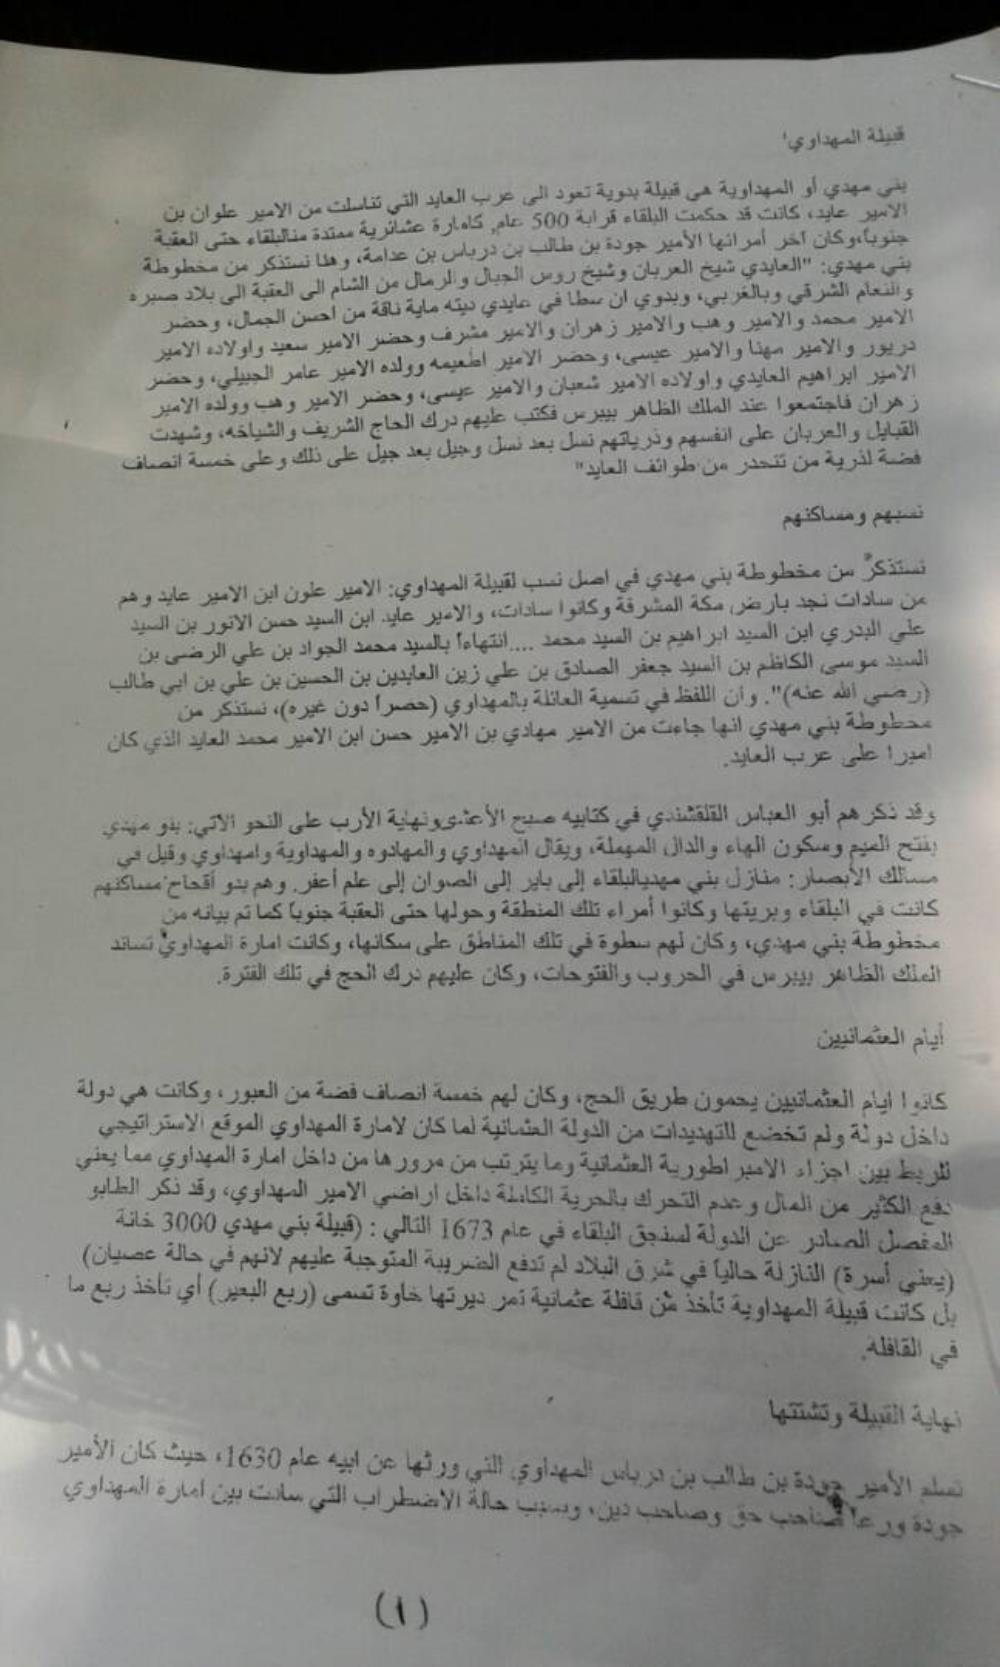 قبيلة المهداوي'
بني مهدي أو المهداوية هي قبيلة بدوية تعود الى عرب العايد التي تناسلت من الامير علوان بن
الامير عايد، كانت قد حكمت البلقاء قرابة 500 عام, كامارة عشائرية ممتدة منالبلقاء حتى العقبة
جنوباً،وكان آخر أمرائها الأمير جودة بن طالب بن درباس بن عدامة، وهنا نستذكر من مخطوطة
بني مهدي: "العايدي شيخ العربان وشيخ روس الجبال والرمال من الشام الى العقبة الى بلاد صبره
والنعام الشرقي وبالغربي، وبدوي ان سطا في عايدي ديته ماية ناقة من احسن الجمال، وحضر
الامير محمد والامير وهب والامير زهران والامير مشرف وحضر الامير سعيد واولاده الامير
دريور والامير مهنا والامير عيسى، وحضر الامير اطعيمه وولده الامير عامر الجبيلي، وحضر
الامير ابراهيم العايدي واولاده الامير شعبان والامير عيسى، وحضر الامير وهب وولده الامير
زهران فاجتمعوا عند الملك الظاهر بيبرس فكتب عليهم درك الحاج الشريف والشياخه، وشهدت
القبايل والعربان على انفسهم وذرياتهم نسل بعد نسل وجيل بعد جيل على ذلك وعلى خمسة انصاف
فضة لذرية من تنحدر من طوائف العايد"
نسبهم ومساكنهم
نستذكر من مخطوطة بني مهدي في اصل نسب لقبيلة المهداوي: الامير علون ابن الامير عايد وهم
من سادات نجد بارض مكة المشرفة وكانوا سادات، والامير عايد ابن السيد حسن الانور بن السيد
علي البدري ابن السيد ابراهيم بن السيد محمد ....انتهاءاً بالسيد محمد الجواد بن علي الرضى بن
السيد موسى الكاظم بن السيد جعفر الصادق بن علي زين العابدين بن الحسين بن علي بن ابي طالب
(رضي الله عنه)". وان اللفظ في تسمية العائلة بالمهداوي (حصراً دون غيره)، نستذكر من
مخطوطة بني مهدي انها جاءت من الامير مهادي بن الامير حسن ابن الامير محمد العايد الذي كان
اميرا على عرب العايد.
وقد ذكرهم أبو العباس القلقشندي في كتابيه صبح الأعشىونهاية الأرب على النحو الاتي: بنو مهدي
بفتح الميم وسكون الهاء والدال المهملة، ويقال المهداوي والمهادوه والمهداوية وامهداوي وقيل في
مسالك الأبصار: منازل بني مهديبالبلقاء إلى باير إلى الصوان إلى علم أعفر. وهم بدو أقحاح مساكنهم
كانت في البلقاء وبريتها وكانوا أمراء تلك المنطقة وحولها حتى العقبة جنوباً كما تم بيانه من
مخطوطة بني مهدي، وكان لهم سطوة في تلك المناطق على سكانها، وكانت امارة المهداوي تساند
الملك الظاهر بيبرس في الحروب والفتوحات، وكان عليهم درك الحج في تلك الفترة.
أيام العثمانيين
كانوا ايام العثمانيين يحمون طريق الحج، وكان لهم خمسة انصاف فضة من العبور، وكانت هي دولة
داخل دولة ولم تخضع للتهديدات من الدولة العثمانية لما كان لامارة المهداوي الموقع الاستراتيجي
للربط بين اجزاء الامبراطورية العثمانية وما يترتب من مرورها من داخل امارة المهداوي مما يعني
دفع الكثير من المال وعدم التحرك بالحرية الكاملة داخل اراضي الامير المهداوي، وقد ذكر الطابو
المفصل الصادر عن الدولة لسنجق البلقاء في عام 1673 التالي : (قبيلة بني مهدي 3000 خانة
(يعني أسرة) النازلة حالياً في شرق البلاد لم تدفع الضريبة المتوجبة عليهم لانهم في حالة عصيان)
بل كانت قبيلة المهداوية تأخذ من قافلة عثمانية تمر ديرتها خاوة تسمى (ربع البعير) أي تأخذ ربع ما
في القافلة.
نهاية القبيلة وتشتتها
تسلم الأمير جودة بن طالب بن درباس المهداوي التي ورثها عن ابيه عام 1630، حيث كان الأمير
جودة ورعاً صاحب حق وصاحب دين، وبسبب حالة الاضطراب التي سادت بين امارة المهداوي
(١)